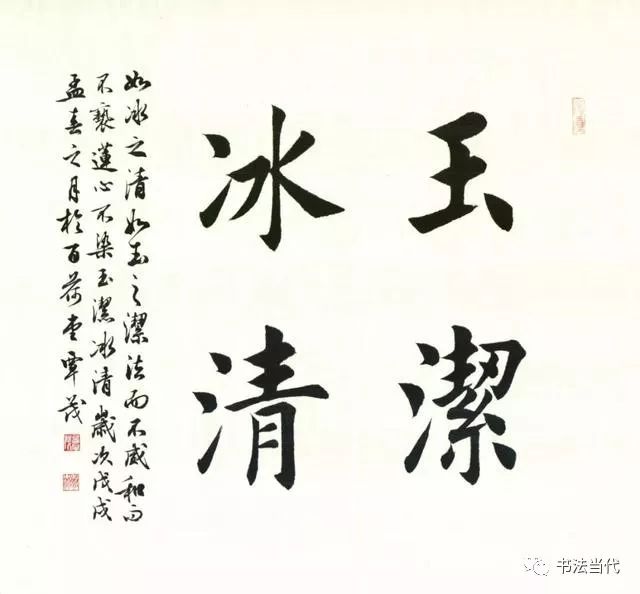 玉潔
冰清
如冰之清如玉之潔法而不威和而
不褻蓮心不染玉潔冰清歲次戊戌
孟春之月於百荷堂覃茂
书法当代